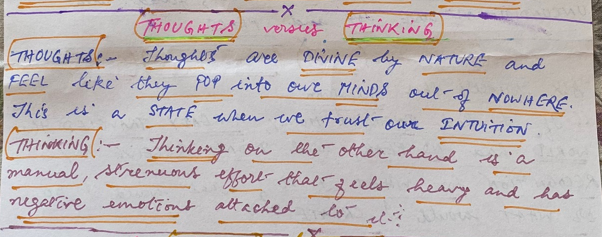 THOUGHTS versus THINKING
THOUGHTS:- Thoughts are DIVINE by NATURE and
FEEL like they POP into our MINDS out of NOWHERE.
This is a STATE when we trust our INTUITION.
THINKING:- Thinking on the other hand is a
manual, strenuous effort that feels heavy and has
negative emotions attached to it.